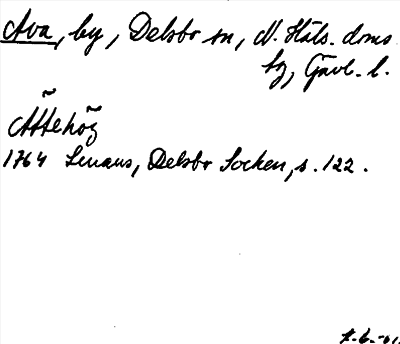 Ava, by, Delsbo sn, N. Häls. doms
sg, Gävl. l.
Ättehög
1764 Lenæus, Delsbo Socken, s. 122.